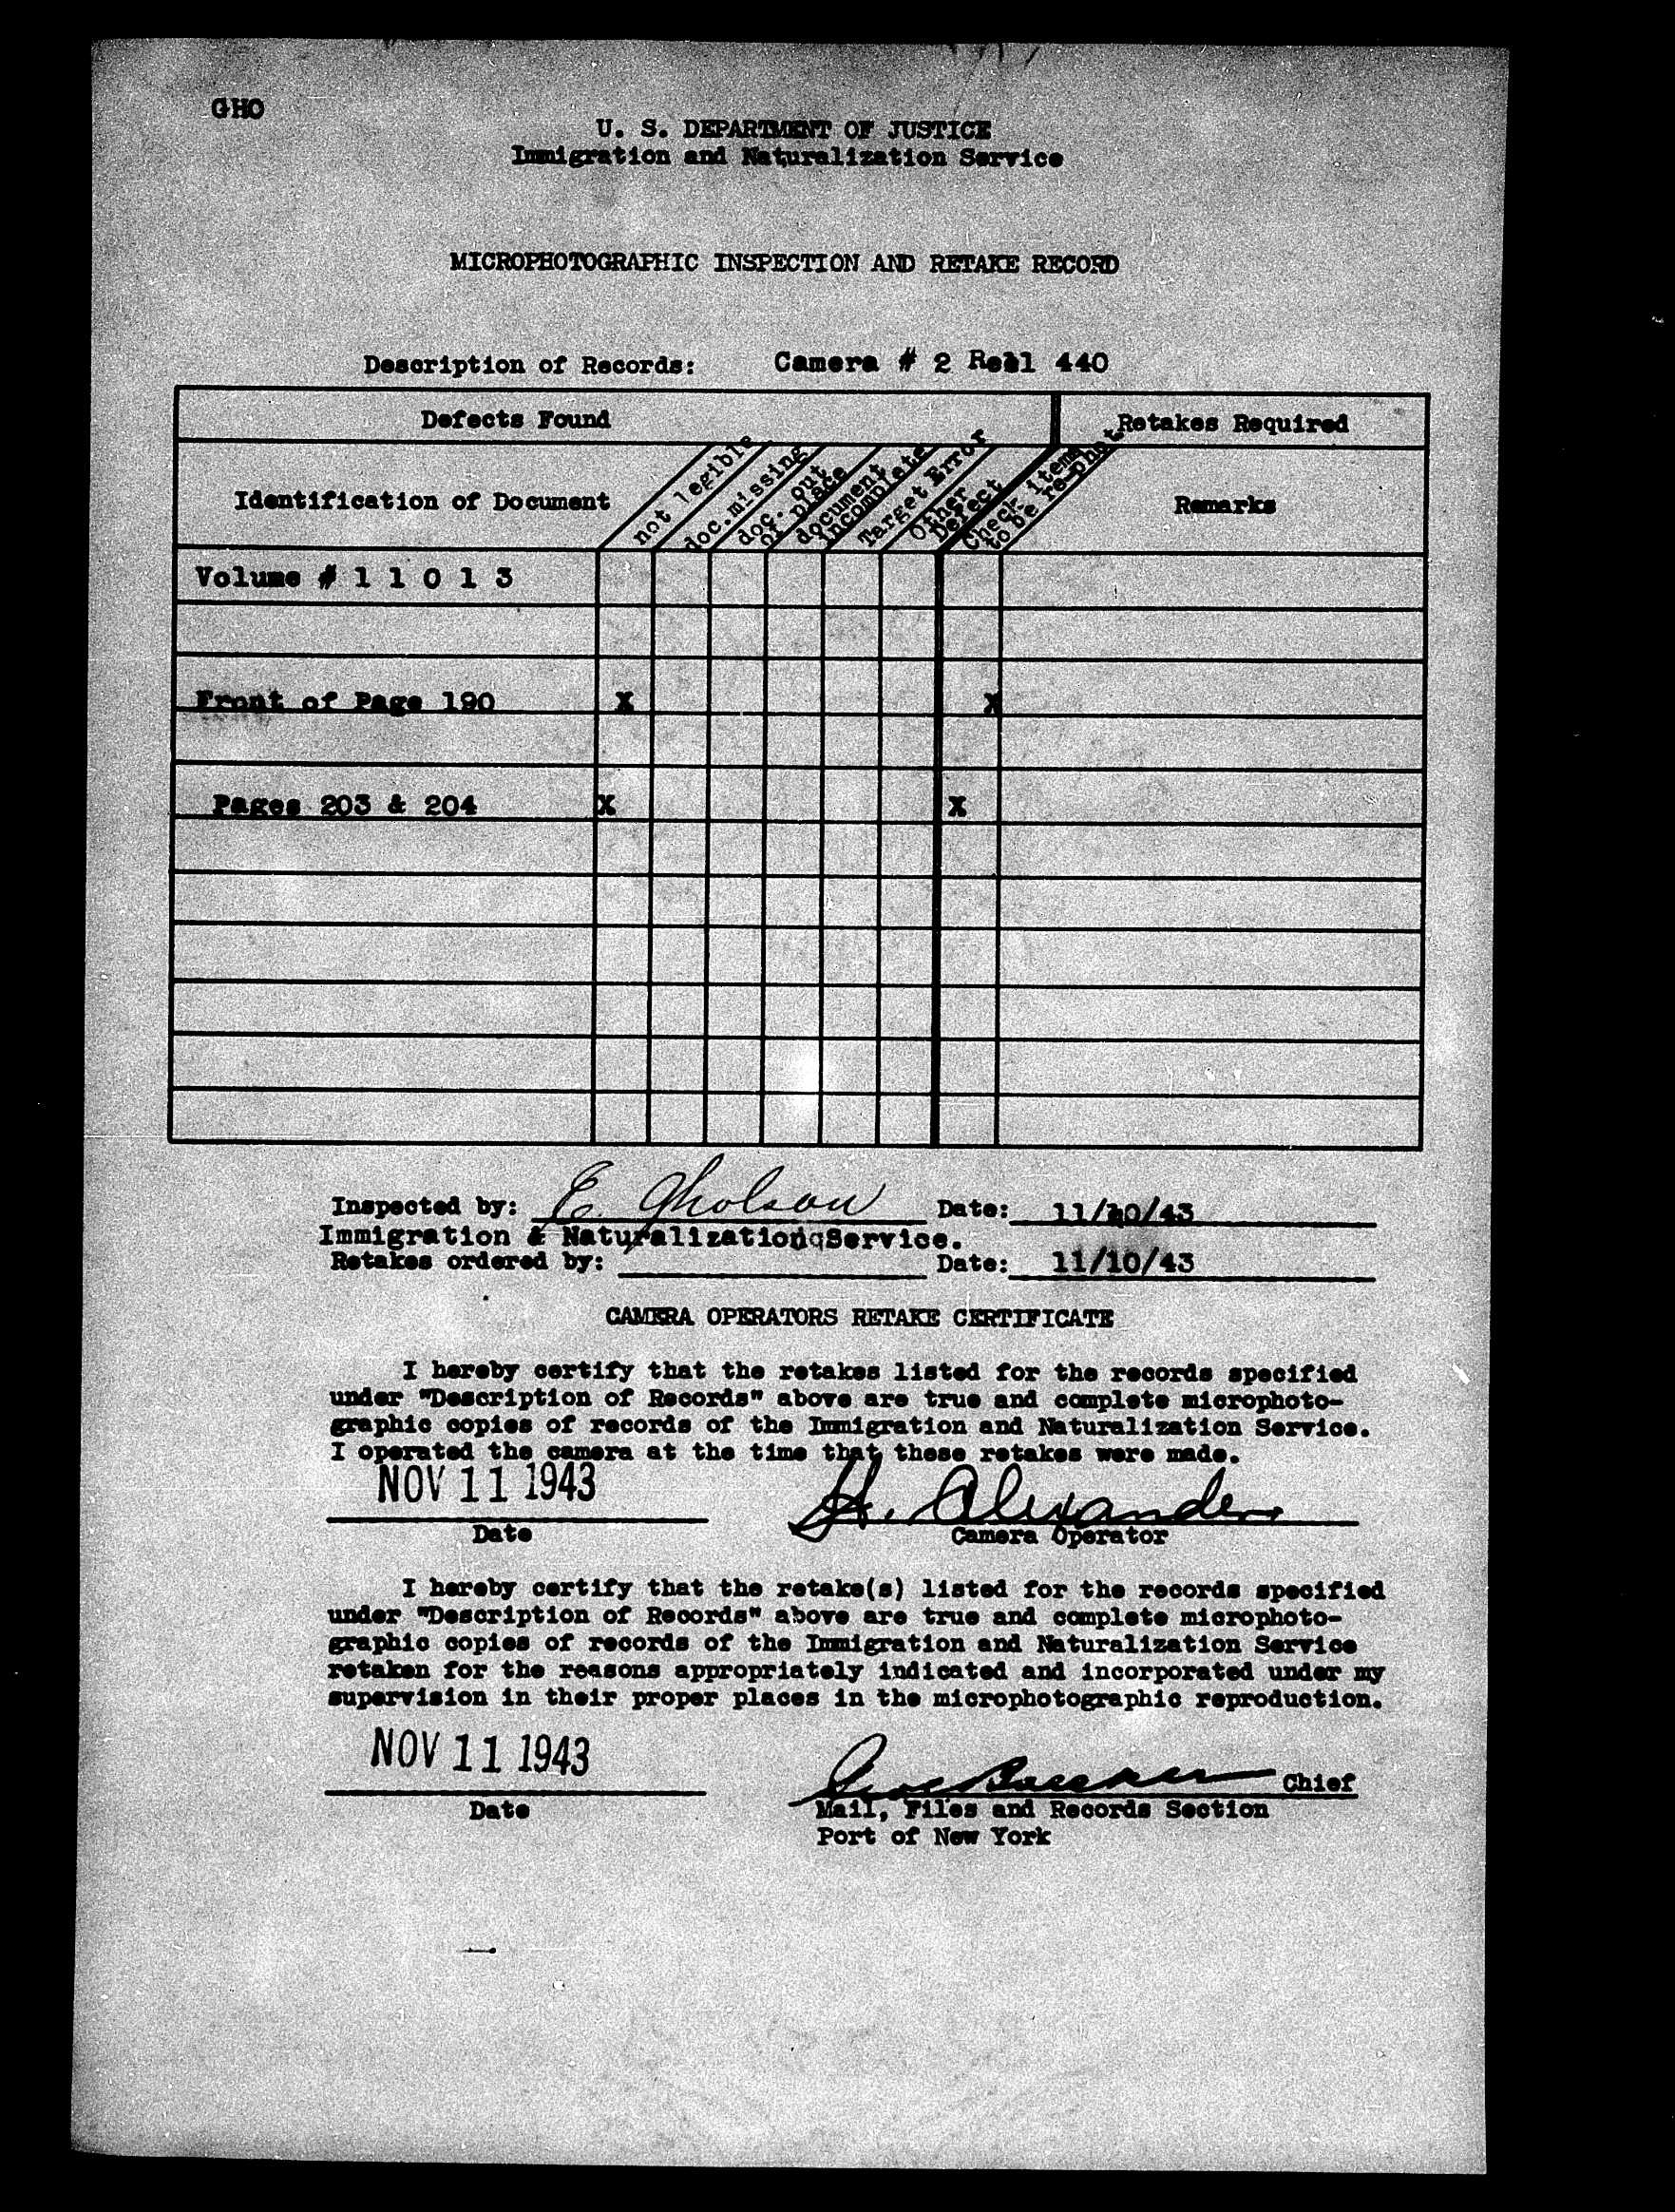 GHO
U. S. DEPARTMENT OF JUSTICE
Immigration and Naturalization Service
MICROPHOTOGRAPHIC INSPECTION AND RETAKE RECORD
Description of Records: Camera # 2 Reel 440
Defects Found
Retakes Required
Identification of Document
not legible
doc.missing
doc. out
of place
document
incomplete
Target Error
Other
Defect
Check items
to be re-phot
Remarks
Volume # 1 1 0 1 3
Front of Page 190 X X
Pages 203 & 204 X X
Inspected by: E. Gholson Date: 11/10/43
Immigration & Naturalization Service.
Retakes ordered by: Date: 11/10/43
CAMERA OPERATORS RETAKE CERTIFICATE
I hereby certify that the retakes listed for the records specified
under "Description of Records" above are true and complete microphoto-
graphic copies of records of the Immigration and Naturalization Service.
I operated the camera at the time that these retakes were made.
NOV 11 1943 H. Alexander
Date Camera Operator
I hereby certify that the retake(s) listed for the records specified
under "Description of Records" above are true and complete microphoto-
graphic copies of records of the Immigration and Naturalization Service
retaken for the reasons appropriately indicated and incorporated under my
supervision in their proper places in the microphotographic reproduction.
NOV 11 1943
Chief
Date Mail, Files and Records Section
Port of New York